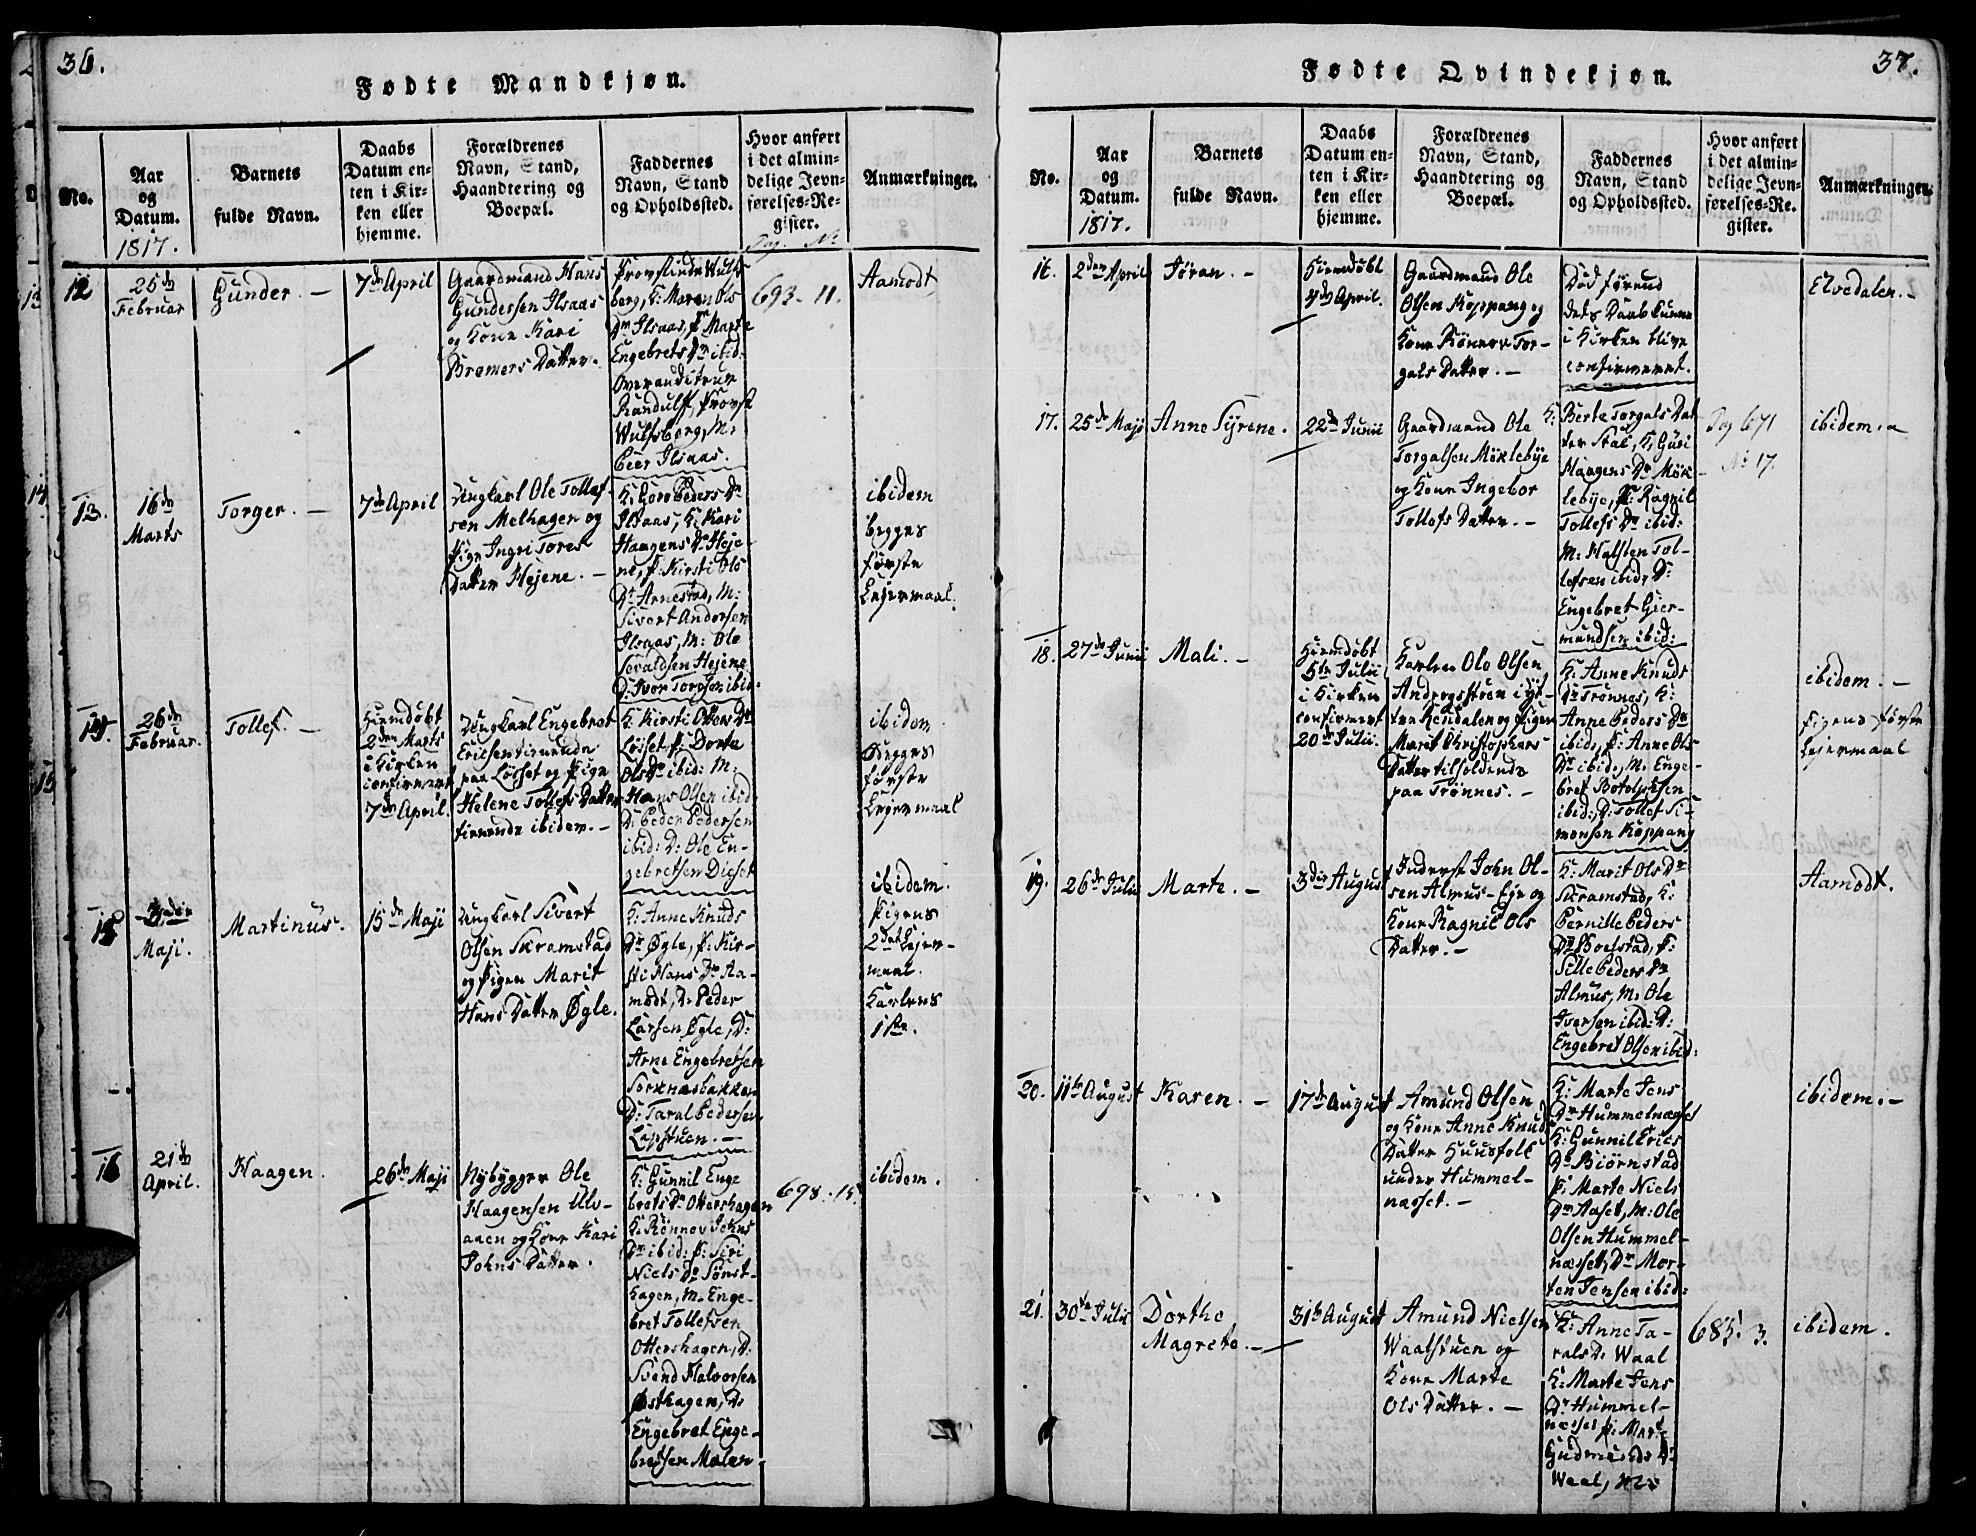 36.
Fødte Mandkjøn.
No.
Aar
og
Datum.
1817.
Barnets
fulde Navn.
Daabs
Datum en-
ten i Kir-
ken eller
hjemme.
Forældrenes
Navn, Stand,
Haandtering og
Boepæl.
Faddernes
Navn, Stand
og Opholdssted.
Hvor anført
i det almin-
delige Jevn-
førelses-Re-
gister.
Pag. No
Anmærkninger.
12
25de
Februar
Gunder. -
7de April
Gaardmand Hans
Gundersen Ilsaas
og Kone Kari
Bremers Datter.
Provstinde Wulfs
berg, K: Maren Ols
Dr Ilsaas, P. Marte
Engebrets Dr ibid:
Overauditeur
Randulff, Provst
Wulfsberg, M:
Peer Ilsaas.
693. 11.
Aamodt
13.
16de
Marts
Torger. -
7de April
Ungkarl Ole Tollef-
sen Melhagen og
Pige Ingri Tores
Datter Hejene. -
K: Goro Peders Dr
Ilsaas, K: Kari
Haagens Dr Heje-
ne, P: Kirsti Ols
Dr Arnestad, M:
Sivert Andersen
Ilsaas, M: Ole
Hejene
D: Iver Toresen ibid:
ibidem
begges
første
Lejermaal.
14.
26de
Februar.
Tollef. -
Hiemdøbt
2den Marts
i Kirken
confirmeret
7de April.
Ungkarl Engebret
Ericsen tienende
paa Løsset og Pige
Helene Tollefs Datter
tienende ibidem. -
K: Kirsti Otters Dr
Løsset, P: Dorte
Ols Dr ibid: M:
Hans Olsen ibid
D: Peder Pedersen
ibid: D: Ole En-
gebretsen Disset
ibidem
Begges
første
Lejermaal
15
Maji.
Martinus.
15de Maji
Ungkarl Sivert
Olsen Skramstad
og Pigen Marit
Hans Datter Øgle.
K: Anne Knuds
Dr Øgle, P: Kir-
sti Hans Dr Aa-
modt, D: Peder
Larsen Øgle, D:
Arne Engebretsen
Sorknæsbakken
D: Taral Pedersen
Løpstuen. -
ibidem.
Pigens
2det Lejer-
maal.
Karlens
1ste.
16
21de
April.
Haagen.
26de Maji
Nybygger Ole
Haagensen Ulv-
aaen og Kone Kari
Johns Datter.
K: Gunnil Enge
brets Dr Ottershagen
K: Rønnov Johns
Dr ibid: P: Siri
Niels Dr Sønst-
hagen, M: Enge-
bret Tollefsen
Ottershagen, D:
Svend Halvorsen
Østhagen, D:
Engebret Enge-
bretsen Moløn.
698. 15.
ibidem.
37.
Fødte Qvindekjøn.
No.
Aar
og
Datum.
1817.
Barnets
fulde Navn.
Daabs
Datum en-
ten i Kir-
ken eller
hjemme.
Forældrenes
Navn, Stand,
Haandtering og
Boepæl.
Faddernes
Navn, Stand
og Opholdssted.
Hvor anført
i det almin-
delige Jevn-
førelses-Re-
gister.
Anmærkninger.
16.
2den April
Jøran. -
Hiemdøbt
4de April.
Gaardmand Ole
Olsen Koppang og
Kone Rønnov Tor-
gals Datter. -
Død førend
dets Daab kunne
i Kirken blive
confirmeret.
Elvedalen. -
17.
25de Maji
Anne Syrene.
22de Junii
Gaardmand Ole
Torgalsen Møklebye
og Kone Ingebor
Tollefs Datter. -
K: Berte Torgals Dat
ter Stai, K: Guri
Haagens Dr Møk-
lebye, P: Ragnil
Tollefs Dr ibid:
M: Halsten Tol-
lefsen ibid, D:
Engebret Gier-
mundsen ibid:
Pag 671
No 17.
ibidem. -
18.
27de Junii
Mali. -
Hiemdøbt
5te Julii
i Kirken
confirmert
20de Julii.
Karlen Ole Olsen
Andregsstøen i Yt-
tre Rendalen og Pigen
Marit Christophers
Datter tilholdende
paa Trønnes. -
K: Anne Knuds
Dr Trønnes, K:
Anne Peders Dr
ibid, P: Anne Ols
Dr ibid, M: Enge-
bret Botolphsen
ibid: D: Tollef Si-
monsen Koppang
ibidem. -
Pigens første
Lejermaal
19.
26de Julii
Marte. -
3die August
Inderst John Ol-
sen Almus-Eje og
Kone Ragnil Ols
Datter. -
K: Marit Ols Dr
Skramstad, K:
Pernille Peders
Dr Bolstad, P:
Sille Peders Dr
Almus, M: Ole
Iversen ibid: D:
Engebret Olsen ibid:
Aamodt.
20.
11te August
Karen. -
17de August
Amund Olsen
og Kone Anne Knuds
Datter Huusfolk
under Hummel-
næsset. -
K: Marte Jens
Dr Hummelnæsset
K: Gunnil Erics
Dr Biørnstad
P: Marte Niels
Dr Aaset, M: Ole
Olsen Hummel-
næsset, Dr Mor-
ten Jensen ibid:
ibidem. -
21.
30te Julii
Dorthe
Magrete. -
31te August
Amund Nielsen
Waalstuen og
Kone Marte
Ols Datter. -
K: Anne Ta-
rals D: Waal
K: Marte Jens
Dr Hummel-
næsset P: Mart
Gudmunds D:
Waal,
685. 3.
ibidem.